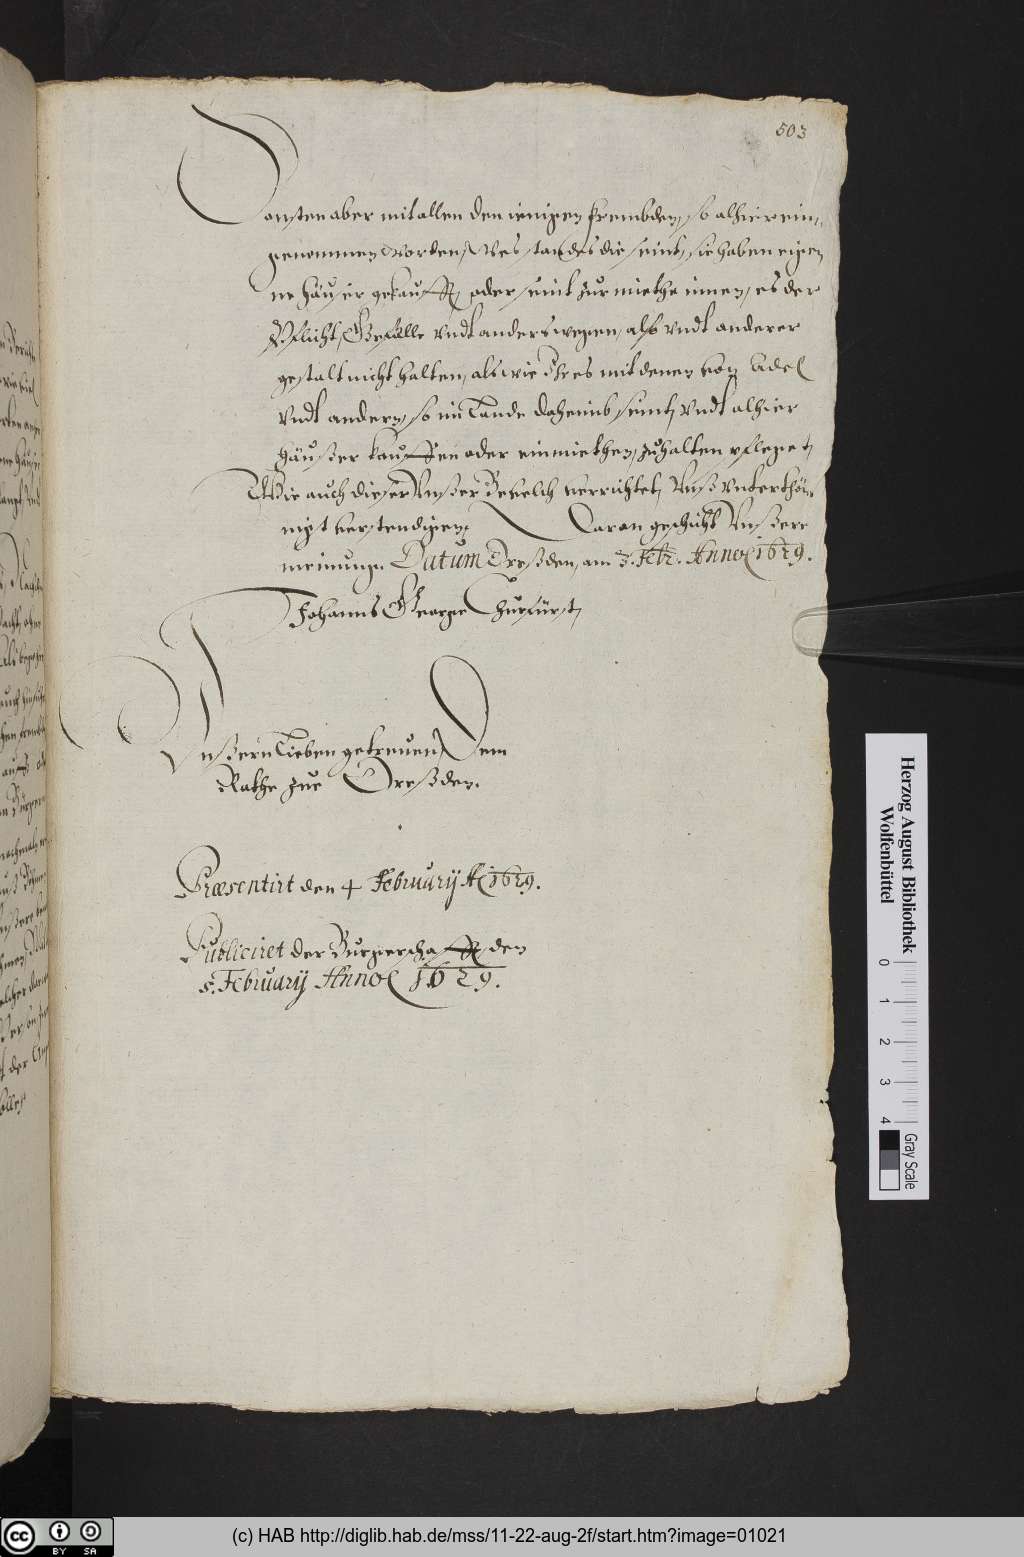 503
Sonsten aber mit allen den ienigen frembden, so alhier ein-
genommen worden, Wes standes die seint, sie haben eige-
ne häuser gekaufft, oder seint zur miethe innen, es der
Pflicht, Gefälle vndt anders wegen, als vndt anderer
gestalt nicht halten, als wie Ihr es mit denen von Adel
vndt andern, so im Lande daheimb seint, vndt alhier
häußer kauffen oder einmiethen, zuhalten pfleget,
Wie auch dießer Unßer Bevelch verrichtet, Unß vnterthä-
nigst verstendigen, Daran geschicht Unßere
meinung. Datum Dreßden, am 3. Febr. Anno 1629.
Johanns George Churfürst
Unßern Lieben getreuen, Dem
Rathe zue Dreßden.
Præsentirt den 4 February A 1629.
Publiciret der Burgerschafft den
5. February Anno 1629.
Herzog August Bibliothek
Wolfenbüttel
0 1 2 3 4
Gray Scale
cc BY SA
(c) HAB http://diglib.hab.de/mss/11-22-aug-2f/start.htm?image=01021